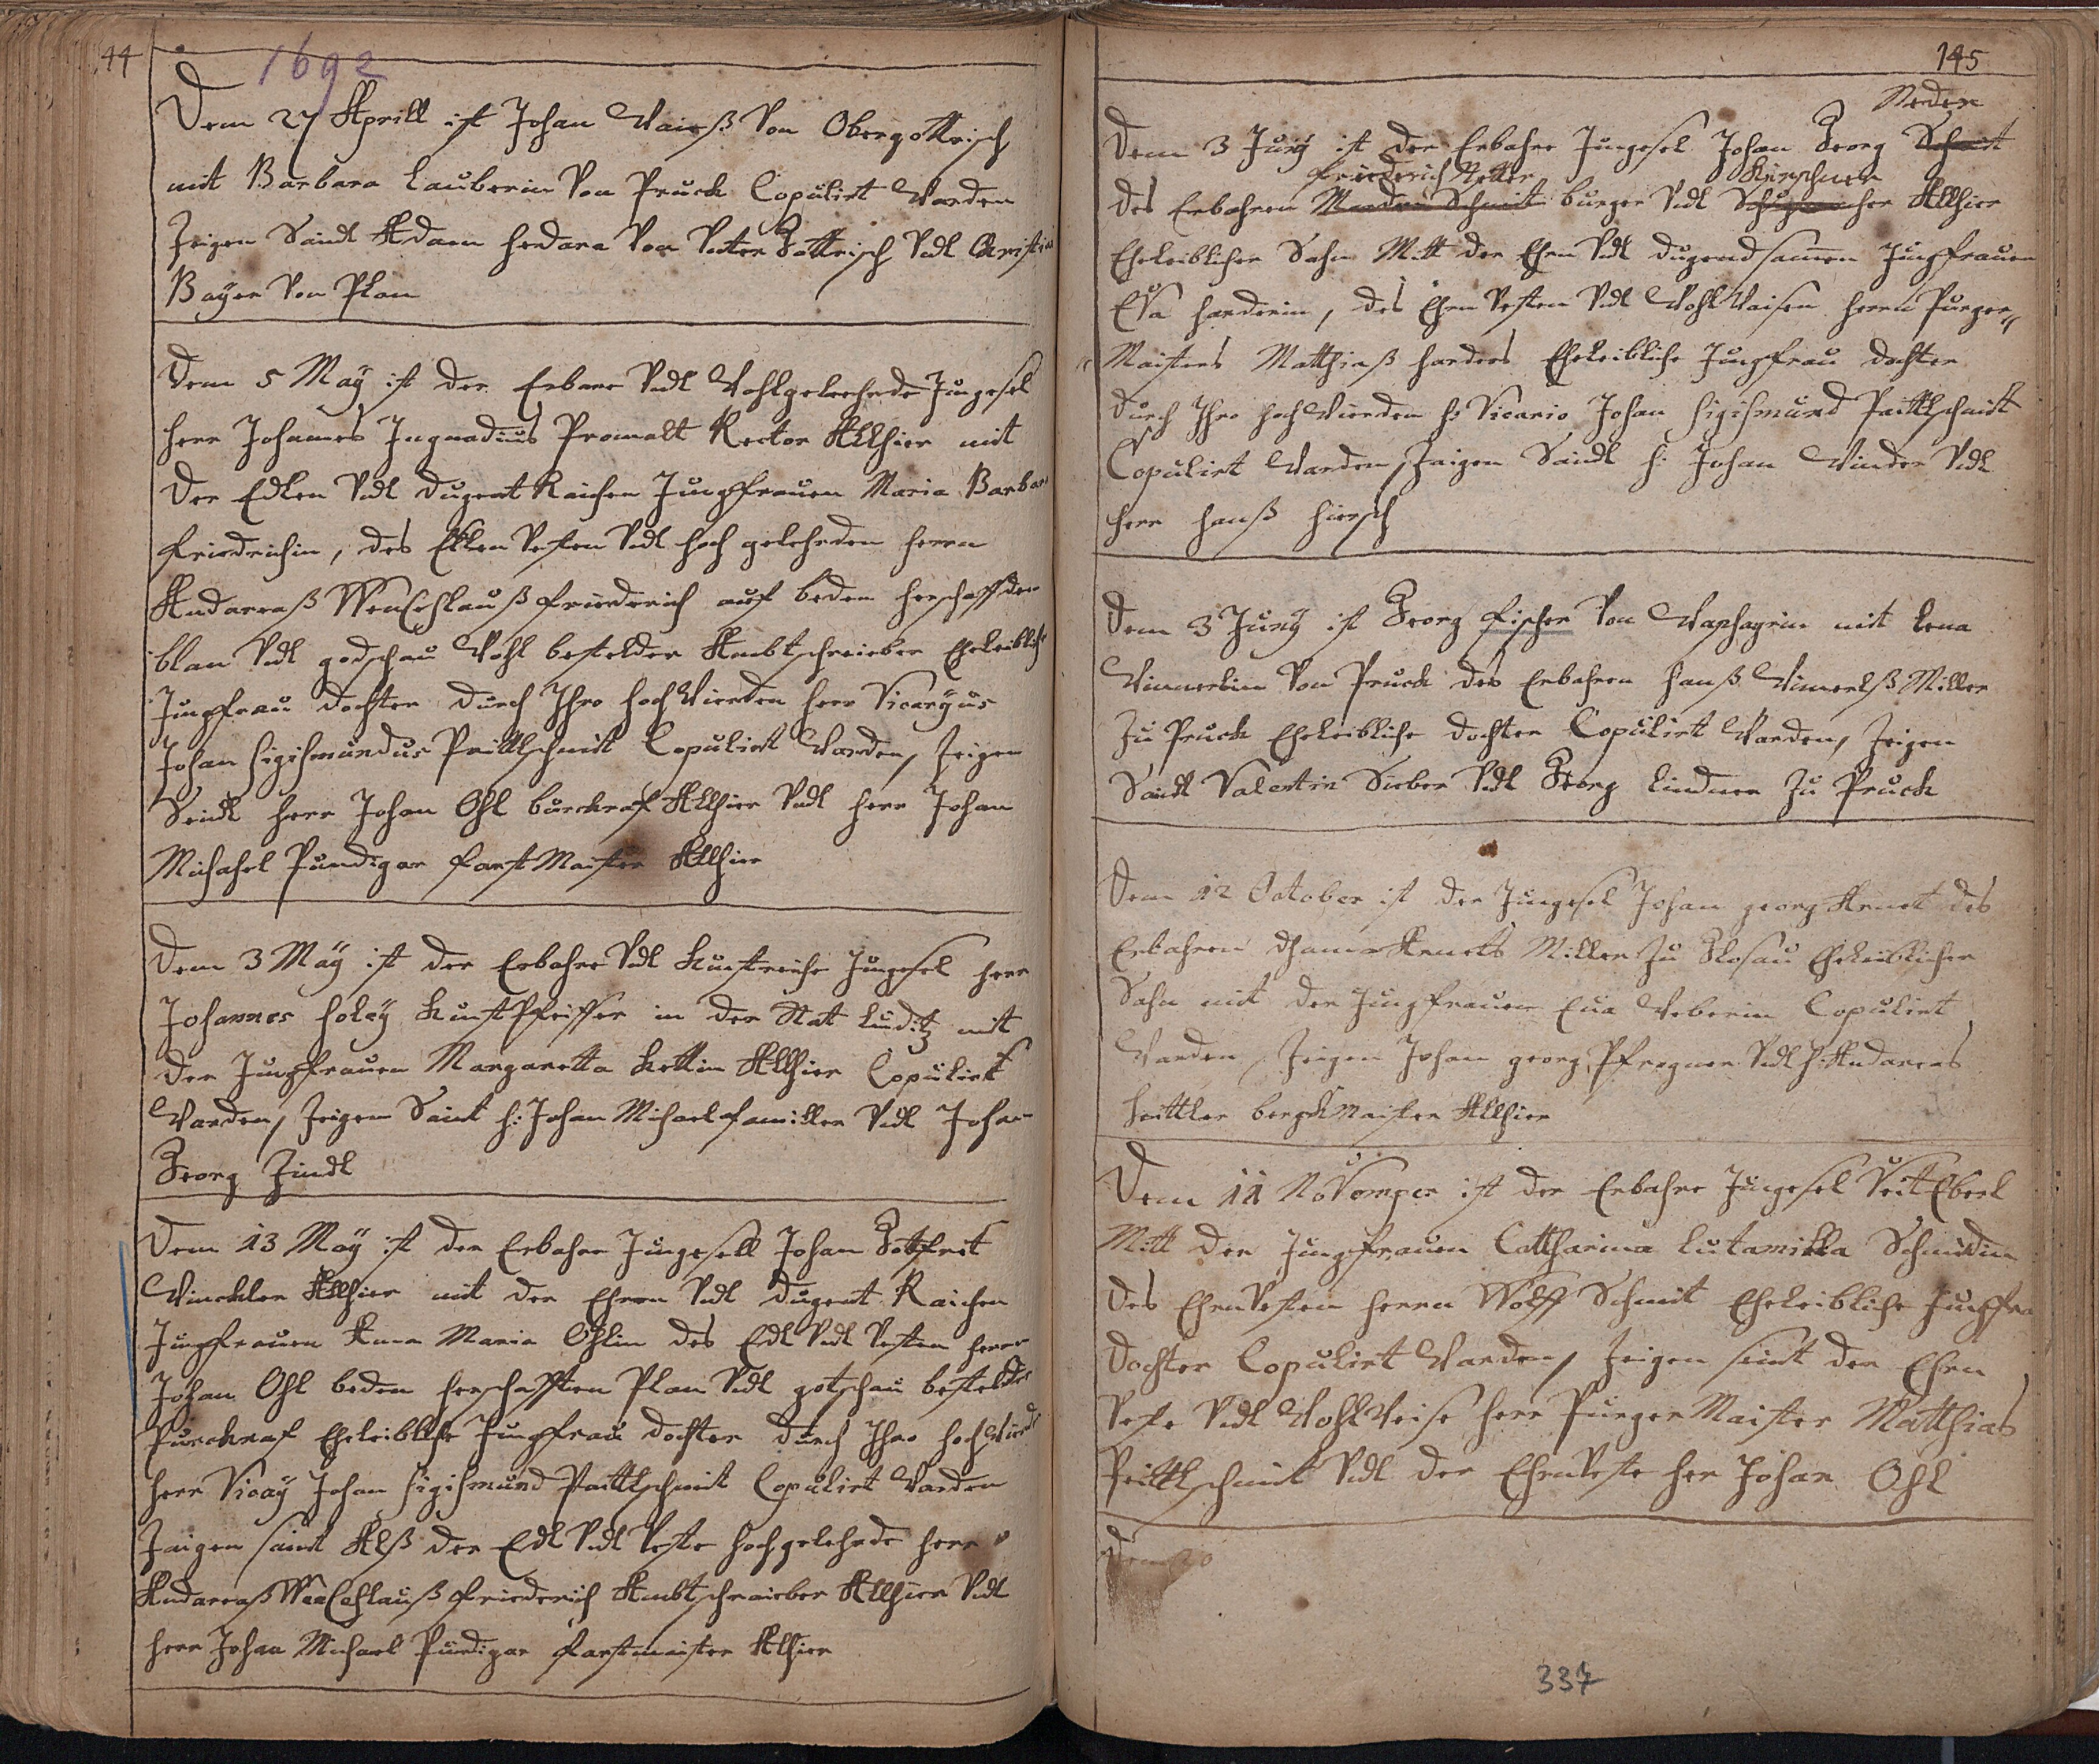 44
1692
Dem 27 Aprill ist Johan Vaiß Von Obergottrisch
mit Barbara Lauberin Von Pruck Copulirt Vorden
Zeigen Saindt Adam Von Vnter Gottrisch Vndt Christia
Bayer Von Plan
Dem 5 May ist der Erbare Vndt Vohlgelerhnde Jungesel
Herr Johannes Ingnadius Promalt Rector Allhier mit
Der Edlen Vndt Dugent Raichen Jungfrauen Maria Barbara
Friedrichin, des Edlen Vesten Vndt hoch gelehrden Herrn
Andareaß Wenßchlauß Friederich auf beden Herschafften
blan Vndt godschau Vohl bestelder Ambtschreiber Eheleibliche
Jungfrau dochter durch Ihro hoch Vierden Herr Vicaryus
Johan Sigihmundus Prittlschmit Copulirt Vorden, Zeigen
Seindt Herr Johan Ohl burckraf Allhier Vndt Herr Johan
Michahel Pundigar Forst Maister Allhier
Dem 3 May ist der Erbahre Vndt Kunstreiche Jungesel Herr
Johannes Holey Kunst Pfeiffer in der Stat Luditz mit
der Jungfrauen Margaretta Kettin Allhier Copulirt
Vorden, Zeigen Saint H: Johan Michael Familler Vndt Johan
Georg Zindl
Dem 13 May ist der Erbahre Jungesell Johan Gottfrit
Vinckler Allhier mit der Ehren Vndt Dugent Raichen
Jungfrauen Anna Maria Ohlin des Edl Vndt Vesten Herrn
Johan Ohl beden Herschafften Plan Vndt gotschau bestelder
Purckraf Eheleibliche Jungfrau dochter durch Ihro hoch Vierd
Herr Vicay Johan Sigihmund Prittlschmit Copulirt Vorden
Zaigen saint Alß der Edl Vndt Veste hochgelehrde Herr
Andareaß Wenßchlauß Friederich Ambtschraiber Allhier Vndt
Herr Johan Michael Pundigar Forstmaister Alhier
145
Neder
Dem 3 Juny ist der Erbahre Jungesel Johan Georg Schmit
Friederich Kirschner
des Erbahren Schmit burger Vndt Allhier
Eheleiblicher Sohn Mitt der Ehren Vndt dugendsamen Jungfrauen
EVa Harderin, des Ehren Vesten Vndt Vohl Vaisen Herrn Purger
Maisters Matthiaß Harders Eheleibliche Jungfrau dochter
durch Ihro hoch Vierden H: Vicario Johan Sigihmund Prittlschmit
Copulirt Vorden, Zaigen Saindt H: Johan Vinder Vndt
Herr Hanß Hiersch
Dem 3 Juny ist Georg Fischer Von mit Lena
Vimerlin Von Pruck des Erbahren Hanß Vimerlß Miller
Zu Pruck Eheleibliche dochter Copulirt Vorden, Zeigen
Saindt Valentin Sieber Vndt Georg Lindner Zu Pruck
Dem 12 October ist der Jungesel Johan georg Arnet des
Erbahren Arnets Miller Zu Eheleiblicher
Sohn mit der Jungfrauen Eua Veberin Copulirt
Vorden, Zeigen Johan georg Pfregner Vndt H: Andareas
Haittler bergkMaister Allhier
Dem 11 NoVemper ist der Erbahre Jungesel Veit Eberl
Mitt der Jungfrauen Cattharina Lutamilla Schmidin
des EhrenVesten Herrn Wolff Schmit Eheleibliche Jungfra
dochter Copulirt Vorden, Zeigen seint der Ehren
Veste Vndt Vohl Veise Herr Purger Maister Matthias
Prittlschmit Vndt der EhrenVeste Her Johan Ohl
Dem 20
337